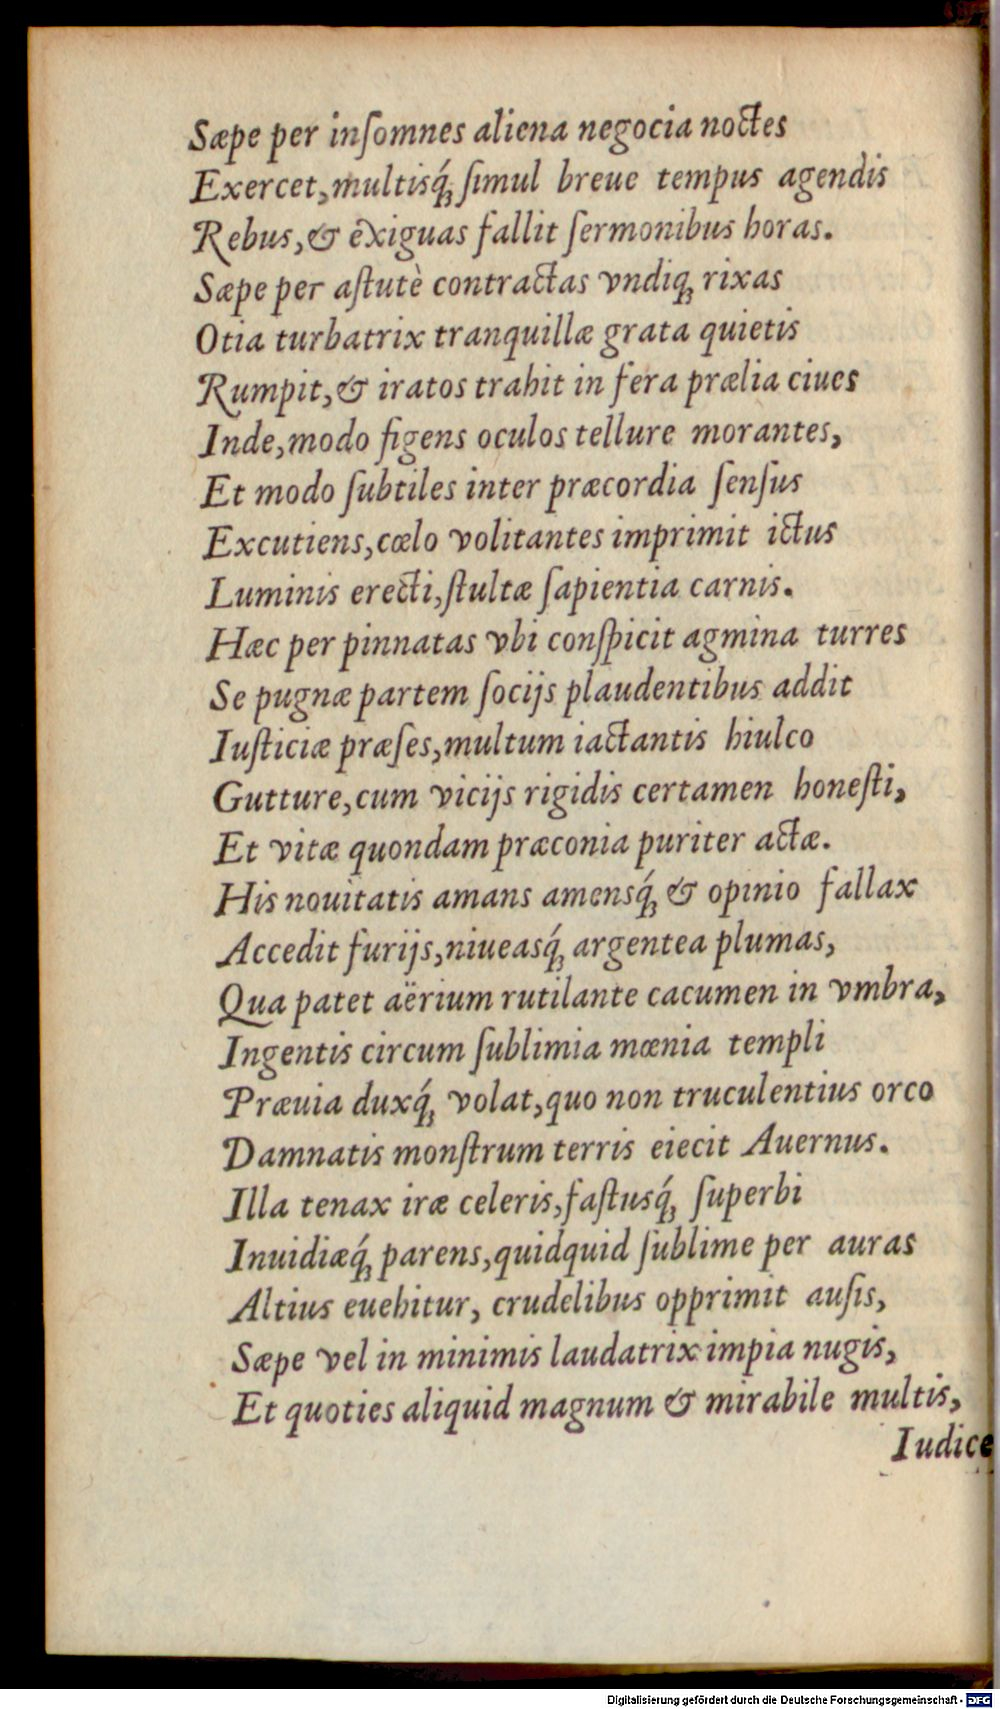 Sæpe per inſomnes aliena negocia noctes
Exercet,multisq́ꝫ ſimul breue tempus agendis
Rebus,& exiguas fallit ſermonibus horas.
Sæpe per aſtutè contractas vndiqꝫ rixas
Otia turbatrix tranquillæ grata quietis
Rumpit,& iratos trahit in fera prælia ciues
Inde,modo figens oculos tellure morantes,
Et modo ſubtiles inter præcordia ſenſus
Excutiens,cœlo volitantes imprimit ictus
Luminis erecti,ſtultæ ſapientia carnis.
Hæc per pinnatas vbi conſpicit agmina turres
Se pugnæ partem ſocijs plaudentibus addit
Iuſticiæ præſes,multum iactantis hiulco
Gutture,cum vicijs rigidis certamen honeſti,
Et vitæ quondam præconia puriter actæ.
His nouitatis amans amensq́ꝫ & opinio fallax
Accedit furijs,niueasq́ꝫ argentea plumas,
Qua patet aërium rutilante cacumen in vmbra,
Ingentis circum ſublimia mœnia templi
Præuia duxq́ꝫ volat,quo non truculentius orco
Damnatis monſtrum terris eiecit Auernus.
Illa tenax iræ celeris,faſtusq́ꝫ ſuperbi
Inuidiæq́ꝫ parens,quidquid ſublime per auras
Altius euehitur, crudelibus opprimit auſis,
Sæpe vel in minimis laudatrix impia nugis,
Et quoties aliquid magnum & mirabile multis,
Iudice
Digitalisierung gefördert durch die Deutsche Forschungsgemeinschaft - DFG